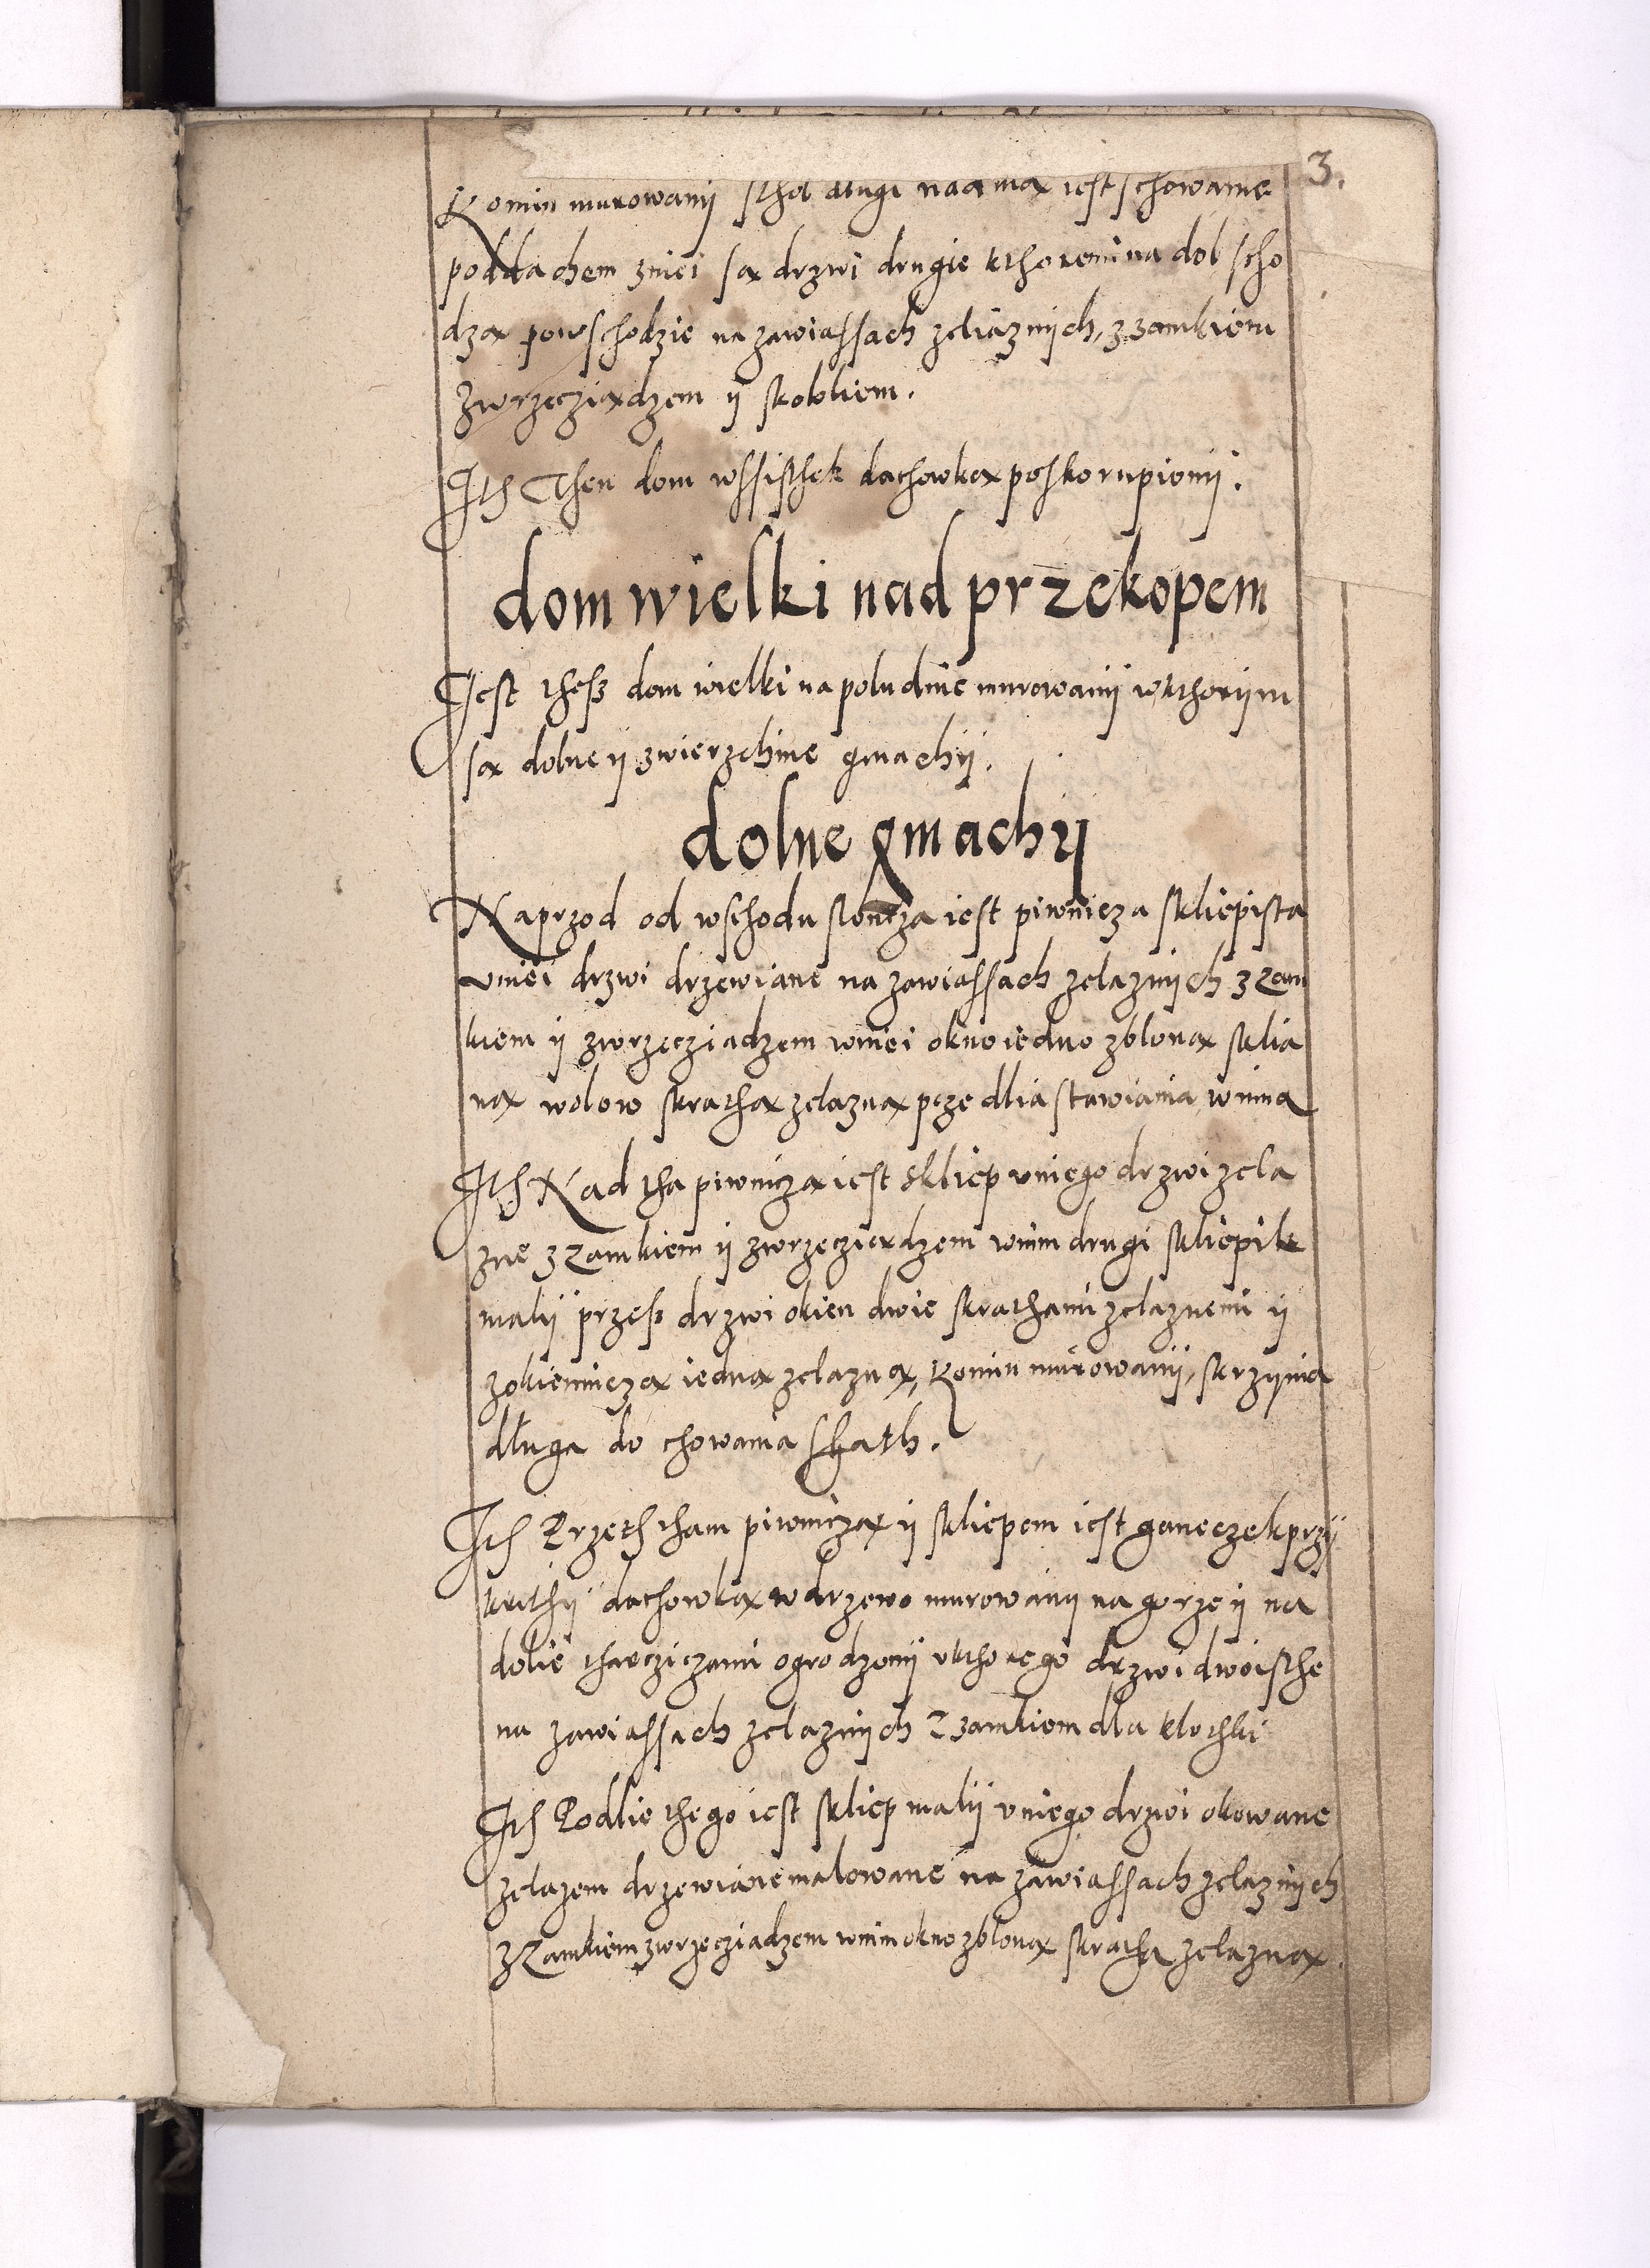 3.
Komin murowanij sthol dlugi nad nią iest schowanie
poddachem zniei są drzwi drugie kthoremi na dol scho
dzą powschodzie na zawiassach zeliaznijch, zzamkiem
zwrzecziądzem ij skobliem.
Ith Then dom wssisthek dachowką poskorupionij.
dom wielki nad przekopem
Jest thesz dom wielki na poludnie murowanij wkthorijm
są dolne ij zwierzchne gmachij.
dolne gmachij
Naprzod od wschodu sloncza iest piwnicza skliepista
vniei drzwi drzewiane na zawiassach zelaznijch zzam
kiem ij zwrzecziadzem wniei okno iedno zbloną sklia
ną wolow skrathą zelazną pcze dlia stawiania winna
Ith Nad tha piwniczą iest skliep vniego drzwi zela
zne zzamkiem ij zwrzecziądzem wnim drugi skliepik
malij przesz drzwi okien dwie skrathami zelaznemi ij
zokienniczą iedną zelazną, komin murowanij, skrzijnia
dluga do chowania shath.
Ith Przeth tham piwniczą ij skliepem iest ganeczek przij
krithij dachowką wdrzewo murowanij na gorze ij na
dolie tharcziczami ogrodzonij vkthorego drzwi dwoisthe
na zawiassach zelaznijch zzamkiem dla klothki
Ith Podlie thego iest skliep malij vniego drzwi okowane
zelazem drzewiane malowane na zawiassach zelaznijch
zzamkiem zwrzecziadzem wnim okno zbloną skratha zelazną.